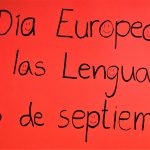 Día Europe
las Lengua
de septiem